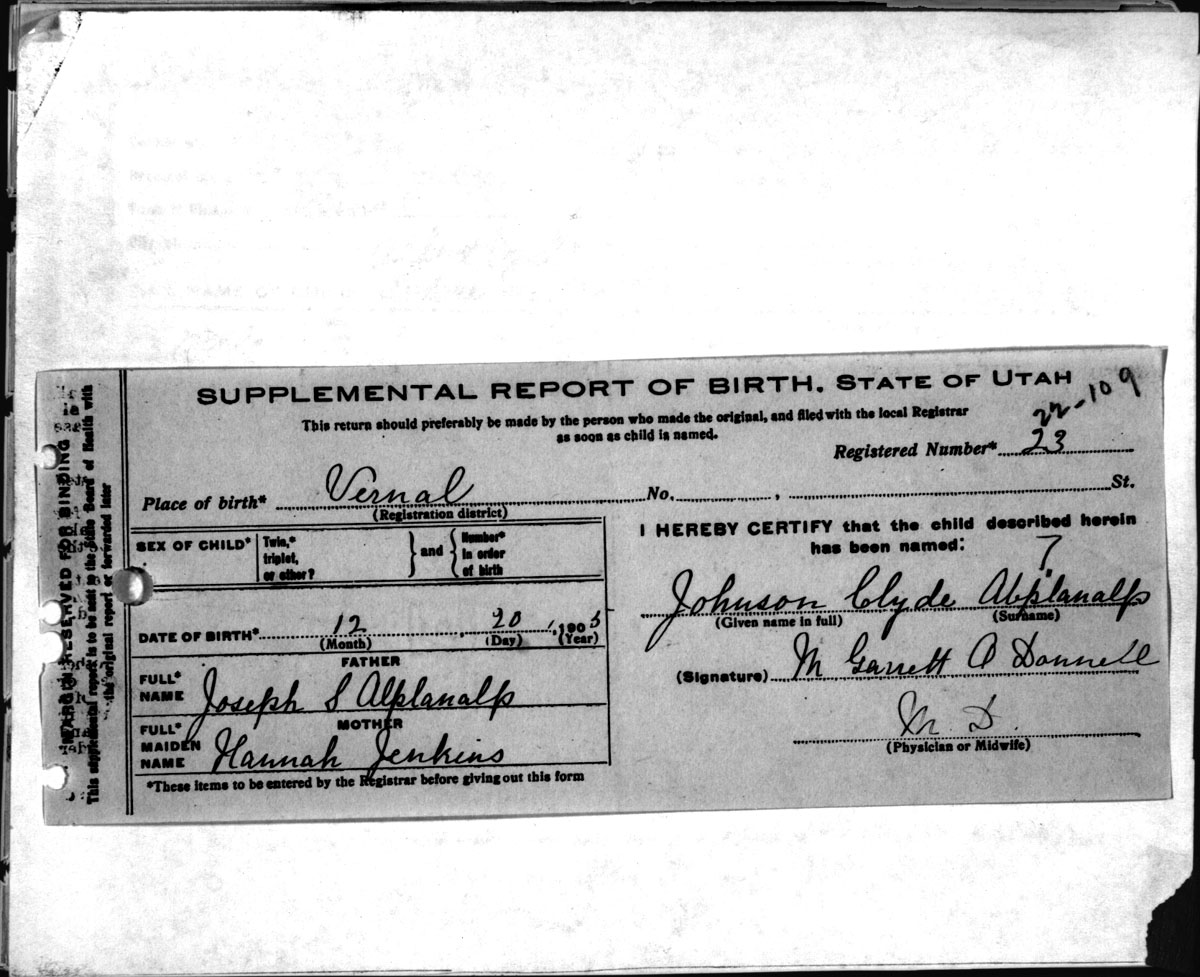 SUPPLEMENTAL REPORT OF BIRTH. STATE OF UTAH
This return should preferably be made by the person who made the original, and filed with the local Registrar
as soon as child is named.
22-109
Registered Number* 23
Place of birth* Vernal No. , St.
(Registration district)
SEX OF CHILD* Twin,* triplet, or other? } and { Number* in order of birth
DATE OF BIRTH* 12 , 20 , 1905
(Month) (Day) (Year)
FATHER
FULL* NAME Joseph S Alplanalp
MOTHER
FULL* MAIDEN NAME Hannah Jenkins
*These items to be entered by the Registrar before giving out this form
I HEREBY CERTIFY that the child described herein
has been named:
?
Johnson Clyde Abplanalp
(Given name in full) (Surname)
(Signature) M Garrett O Donnell
M D.
(Physician or Midwife)
MARGIN RESERVED FOR BINDING
This supplemental report is to be sent to the State Board of Health with
the original report or forwarded later